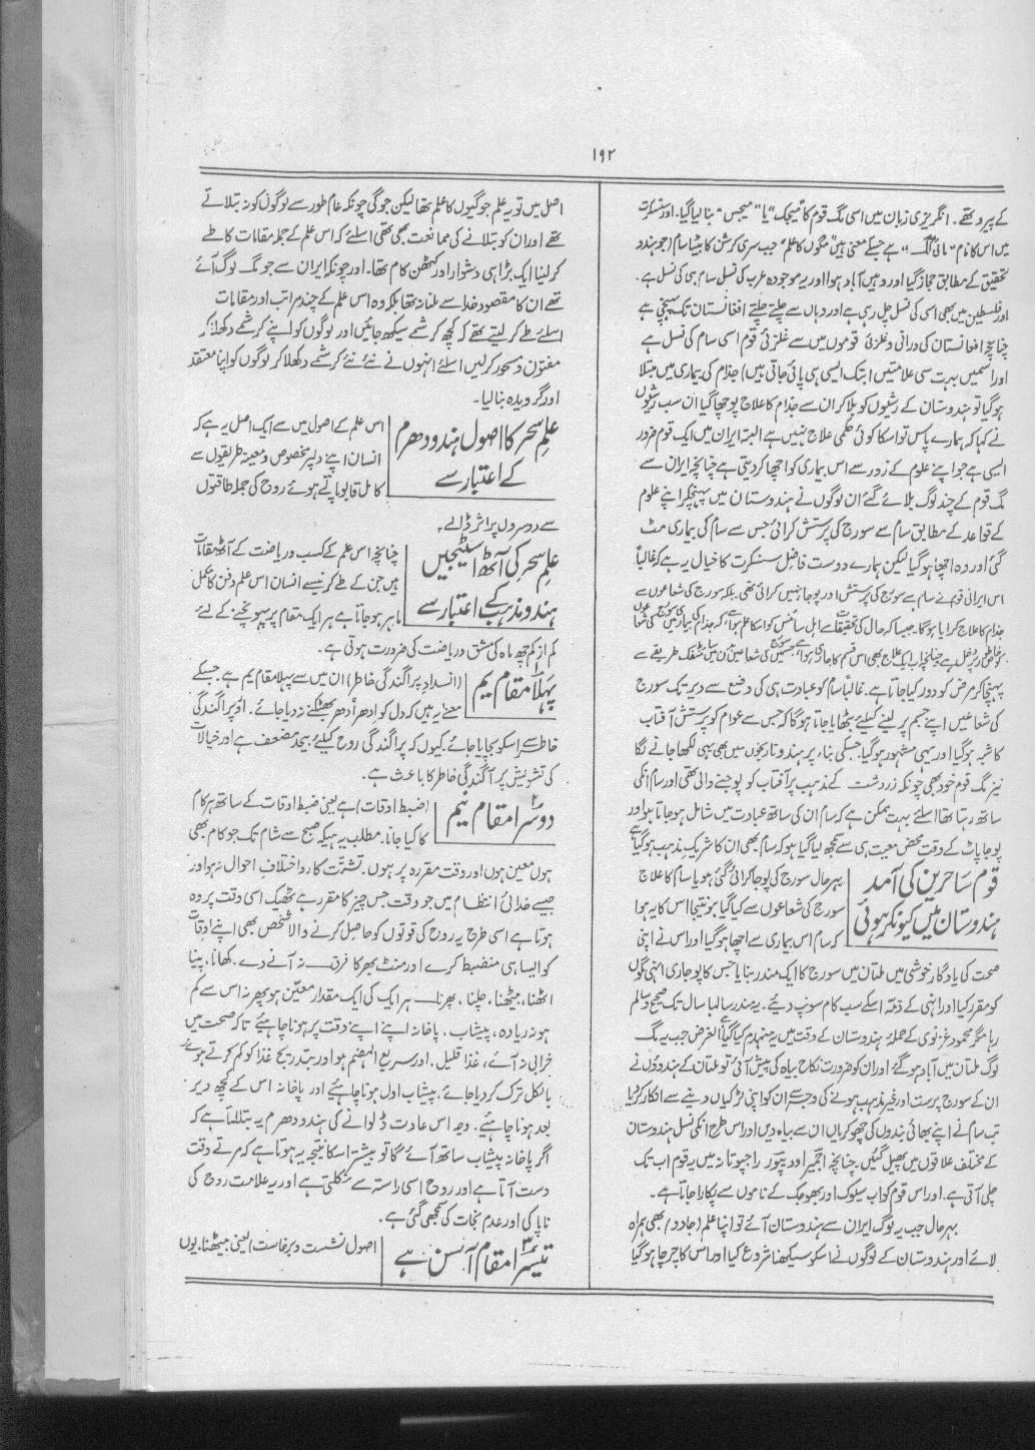 ۱۹۲
کے پیرو تھے۔ انگریزی زبان میں اسی مگ قوم کا میجک "یا" میجس "بنا لیا گیا۔ اور سنسکرت
میں اس کا نام "مائی مگ" ہے جسکے معنی ہیں مگوں کا علم" جب سری کرشن کا بیٹا سام (جو ہندو
تحقیق کے مطابق حجاز گیا اور وہیں آباد ہوا اور یہ موجودہ عرب کی نسل سام ہی کی نسل ہے۔
اور فلسطین میں بھی اسی کی نسل چل رہی ہے اور وہاں سے چلتے چلتے افغانستان تک پہنچی ہے
چنانچہ افغانستان کی درانی و غلزئی قوموں میں سے غلزئی قوم اسی سام کی نسل ہے
اور اسمیں بہت سی علامتیں ابتک ایسی ہی پائی جاتی ہیں) جذام کی بیماری میں مبتلا
ہوگیا تو ہندوستان کے رشیوں کو بلا کر ان سے جذام کا علاج پوچھا گیا ان سب رشیوں
نے کہا کہ ہمارے پاس تو اسکا کوئی حکمی علاج نہیں ہے البتہ ایران میں ایک قوم ضرور
ایسی ہے جو اپنے علوم کے زور سے اس بیماری کو اچھا کردیتی ہے چنانچہ ایران سے
مگ قوم کے چند لوگ بلائے گئے ان لوگوں نے ہندوستان میں پہنچکر اپنے علوم
کے قواعد کے مطابق سام سے سورج کی پرستش کرائی جس سے سام کی بیماری مٹ
گئی اور وہ اچھا ہوگیا لیکن ہمارے دوست فاضل سنسکرت کا خیال یہ ہے کہ غالباً
اس ایرانی قوم نے سام سے سورج کی پرستش اور پوجا نہیں کرائی تھی۔ بلکہ سورج کی شعاعوں سے
جذام کا علاج کرایا ہوگا۔ جیسا کہ حال کی تحقیقات سے اہل سائنس کو اسکا علم ہوا ہے کہ جذام کی بیماری
پہنچا کر مرض کو دور کیا جاتا ہے۔ غالباً سام کو عبادت ہی کی وضع سے دیر تک سورج
کی شعاعیں اپنے جسم پر لینے کیلئے بٹھایا جاتا ہوگا کہ جس سے عوام کو پرستش آفتاب
کا شبہ ہوگیا اور یہی مشہور ہوگیا۔ جسکی بناء پر ہندو تاریخوں میں بھی یہی لکھا جانے لگا
نیز مگ قوم خود بھی چونکہ زردشت کے مذہب پر آفتاب کو پوجنے والی تھی اور سام انکی
ساتھ رہتا تھا اسلئے بہت ممکن ہے کہ سام ان کی ساتھ عبادت میں شامل ہوجاتا ہو اور
پوجا پاٹ کے وقت محض معیت ہی سے سمجھ لیا گیا ہو کہ سام بھی ان کا شریک مذہب ہوگیا ہے
قوم ساحرین کی آمد
ہندوستان میں کیونکر ہوئی
بہر حال سورج کی پوجا کرائی گئی ہو یا سام کا علاج
سورج کی شعاعوں سے کیا گیا ہو نتیجا اس کا یہ ہوا
کہ سام اس بیماری سے اچھا ہوگیا اور اس نے اپنی
صحت کی یادگار خوشی میں ملتان میں سورج کا ایک مندر بنایا جس کا پوجاری انہی مگوں
کو مقرر کیا اور انہی کے ذمہ اسکے سب کام سونپ دیئے۔ یہ مندر سالہا سال تک صحیح و سالم
رہا مگر محمود غزنوی کے حملہ ہندوستان کے وقت میں یہ منہدم کیا گیا ہے الغرض جب یہ مگ
لوگ ملتان میں آباد ہوگئے اور ان کو ضرورت نکاح بیاہ کی پیش آئی تو ملتان کے ہندوؤں نے
ان کے سورج پرست اور غیر مذہب ہونے کی وجہ سے ان کو اپنی لڑکیاں دینے سے انکار کردیا
تب سام نے اپنے بھائی بندوں کی چھوکریاں ان سے بیاہ دیں اور اس طرح انکی نسل ہندوستان
کے مختلف علاقوں میں پھیل گئیں۔ چنانچہ اجمیر اور پتور راجپوتانہ میں یہ قوم اب تک
چلی آتی ہے۔ اور اس قوم کو اب سیلوک اور بھوجک کے ناموں سے پکارا جاتا ہے۔
بہر حال جب یہ لوگ ایران سے ہندوستان آئے تو اپنا علم (جادو) بھی ہمراہ
لائے اور ہندوستان کے لوگوں نے اسکو سیکھنا شروع کیا اور اس کا چرچا ہوگیا
اصل میں تو یہ علم جوگیوں کا علم تھا لیکن جوگی چونکہ عام طور سے لوگوں کو نہ بتلاتے
تھے اور ان کو بتلانے کی ممانعت بھی تھی اسلئے کہ اس علم کے جملہ مقامات کا طے
کرلینا ایک بڑا ہی دشوار اور کٹھن کام تھا۔ اور چونکہ ایران سے جو مگ لوگ آئے
تھے ان کا مقصود خدا سے ملنا نہ تھا بلکہ وہ اس علم کے چند مراتب اور مقامات
اسلئے طے کرلیتے تھے کہ کچھ کرشمے سیکھ جائیں اور لوگوں کو اپنے کرشمے دکھلا کر
مفتون و مسحور کرلیں اسلئے انہوں نے نئے نئے کرشمے دکھلا کر لوگوں کو اپنا معتقد
اور گرویدہ بنالیا۔
علم سحر کا اصول ہندو دھرم
کے اعتبار سے
اس علم کے اصول میں سے ایک اصل یہ ہے کہ
انسان اپنے دلپر مخصوص و معینہ طریقوں سے
کامل قابو پاتے ہوئے روح کی جملہ طاقتوں
سے دوسروں پر اثر ڈالے۔
علم سحر کی آٹھ اسٹیجیں
ہندو مذہب کے اعتبار سے
چنانچہ اس علم کے کسب و ریاضت کے آٹھ مقامات
ہیں جن کے طے کرنیسے انسان اس علم و فن کا مکمل
ماہر ہوجاتا ہے ہر ایک مقام پر پہونچنے کے لئے
کم از کم چھ ماہ کی مشق و ریاضت کی ضرورت ہوتی ہے۔
پہلا مقام یم
(انسداد پراگندگی خاطر) ان میں سے پہلا مقام یم ہے۔ جسکے
معنے یہ ہیں کہ دل کو ادھر اُدھر بھٹکنے نہ دیا جائے۔ اور پراگندگی
خاطر سے اسکو بچایا جائے۔ کیوں کہ پراگندگی روح کیلئے بیحد مضعف ہے اور خیالات
کی تشویش پر آگندگی خاطر کا باعث ہے۔
دوسرا مقام نیم
(ضبط اوقات) ہے یعنی ضبط اوقات کے ساتھ ہر کام
کا کیا جانا۔ مطلب یہ ہیکہ صبح سے شام تک جو کام بھی
ہوں معین ہوں اور وقت مقررہ پر ہوں۔ تشتّت کار و اختلاف احوال نہ ہو اور
جیسے خدائی انتظام میں جو وقت جس چیز کا مقرر ہے ٹھیک اسی وقت پر وہ
ہوتا ہے اسی طرح یہ روح کی قوتوں کو حاصل کرنے والا شخص بھی اپنے اوقات
کو ایسا ہی منضبط کرے اور منٹ بھر کا فرق نہ آنے دے۔ کھانا، پینا
اٹھنا، بیٹھنا، چلنا، پھرنا۔ ہر ایک کی ایک مقدار معیّن ہو پھر نہ اس سے کم
ہو نہ زیادہ، پیشاب، پاخانہ اپنے اپنے وقت پر ہونا چاہیئے تاکہ صحت میں
خرابی نہ آئے، غذا قلیل، اور سریع الہضم ہو اور بتدریج غذا کو کم کرتے ہوئے
بالکل ترک کردیا جائے، پیشاب اول ہونا چاہیئے اور پاخانہ اس کے کچھ دیر
بعد ہونا چاہیے۔ وجہ اس عادت ڈلوانے کی ہندو دھرم یہ بتلاتا ہے کہ
اگر پاخانہ پیشاب ساتھ آئے گا تو بیشتر اسکا نتیجہ یہ ہوتا ہے کہ مرتے وقت
دست آتا ہے اور روح اسی راستہ سے نکلتی ہے اور یہ علامت روح کی
ناپاکی اور عدم نجات کی سمجھی گئی ہے۔
تیسرا مقام آسن ہے
اصول نشست و برخاست (یعنی بیٹھنا، یوں